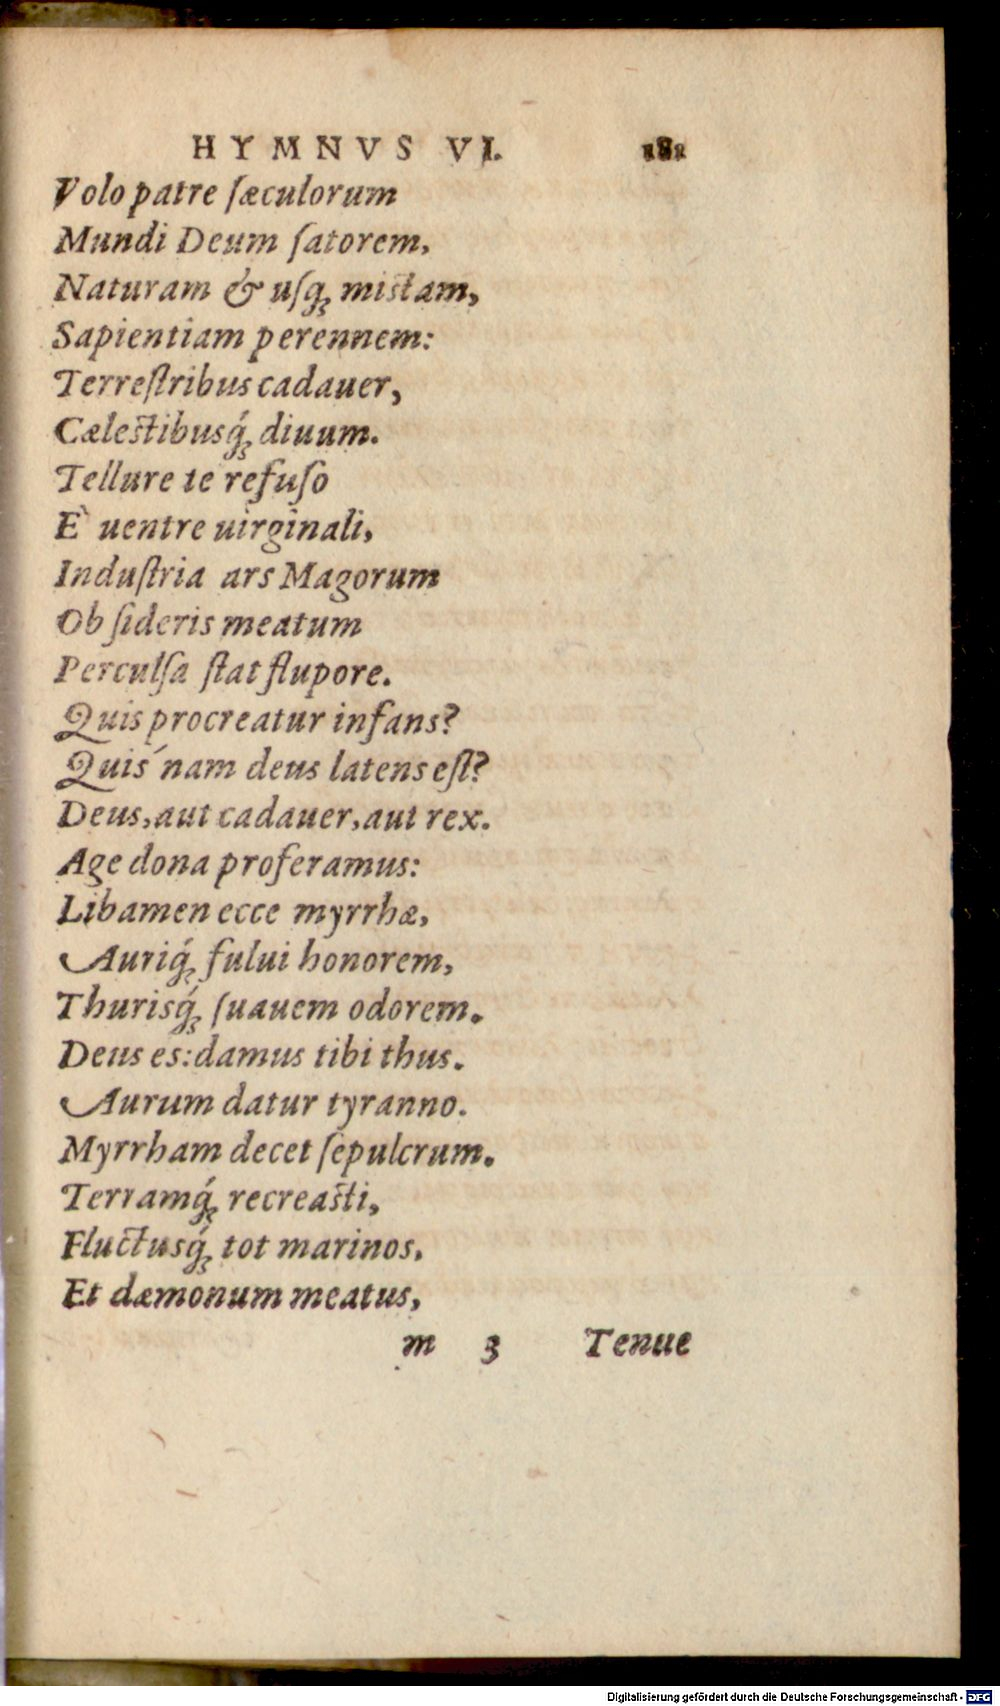 HYMNVS VI. 181
Volo patre ſæculorum
Mundi Deum ſatorem,
Naturam & uſq́ꝫ mistam,
Sapientiam perennem:
Terreſtribus cadauer,
Cælestibusq́ꝫ diuum.
Tellure te refuſo
È uentre uirginali,
Induſtria ars Magorum
Ob ſideris meatum
Perculſa ſtat ſtupore.
Quis procreatur infans?
Quis´nam deus latens eſt?
Deus, aut cadauer, aut rex.
Age dona proferamus:
Libamen ecce myrrhæ,
Auriq́ꝫ fului honorem,
Thurisq́ꝫ ſuauem odorem.
Deus es: damus tibi thus.
Aurum datur tyranno.
Myrrham decet ſepulcrum.
Terramq́ꝫ recreasti,
Fluctusq́ꝫ tot marinos,
Et dæmonum meatus,
m 3 Tenue
Digitalisierung gefördert durch die Deutsche Forschungsgemeinschaft - DFG